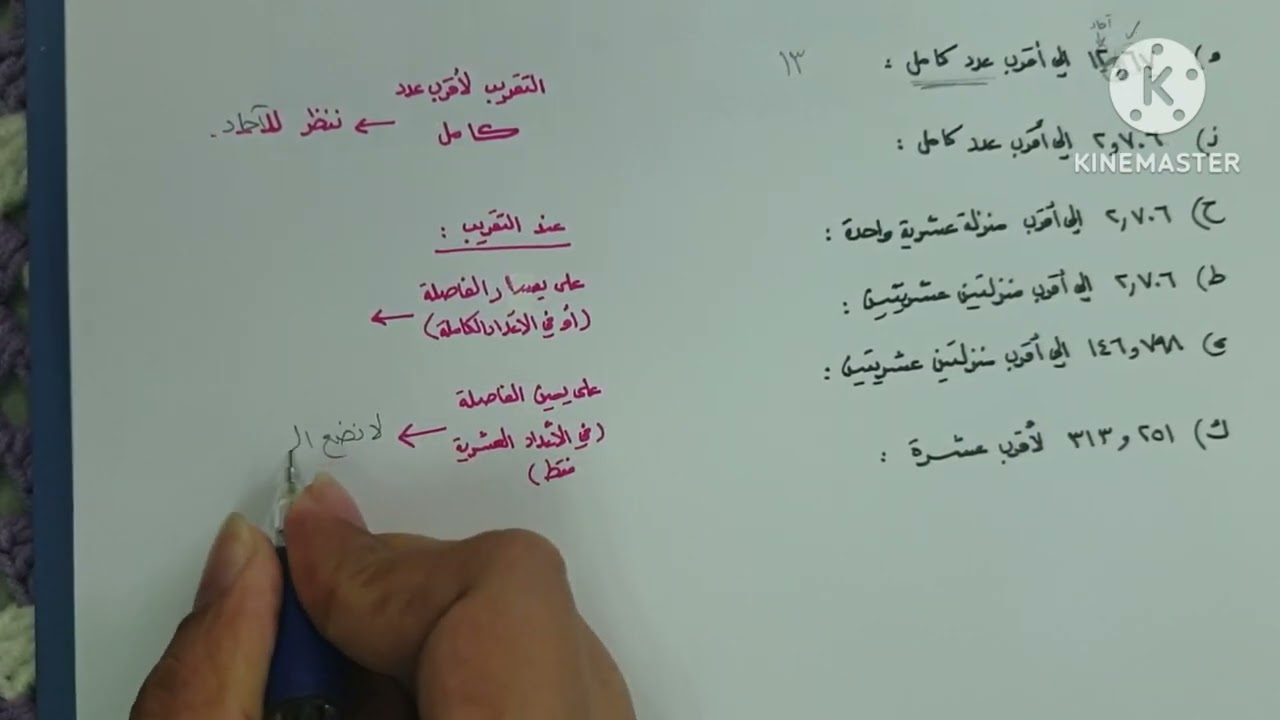 آحاد
و) ١٢,٦٧ إلى أقرب عدد كامل : ١٣
ز) ٢,٧٠٦ إلى أقرب عدد كامل :
ح) ٢,٧٠٦ إلى أقرب منزلة عشرية واحدة :
ط) ٢,٧٠٦ إلى أقرب منزلتين عشريتين :
ي) ١٤٦,٧٩٨ إلى أقرب منزلتين عشريتين :
ك) ٣١٣,٢٥١ لأقرب عشرة :
التقريب لأقرب عدد
كامل ← ننظر للآحاد.
عند التقريب :
على يسار الفاصلة
(أو في الأعداد الكاملة) ←
على يمين الفاصلة
(في الأعداد العشرية ← لا نضع ال
فقط)
KINEMASTER